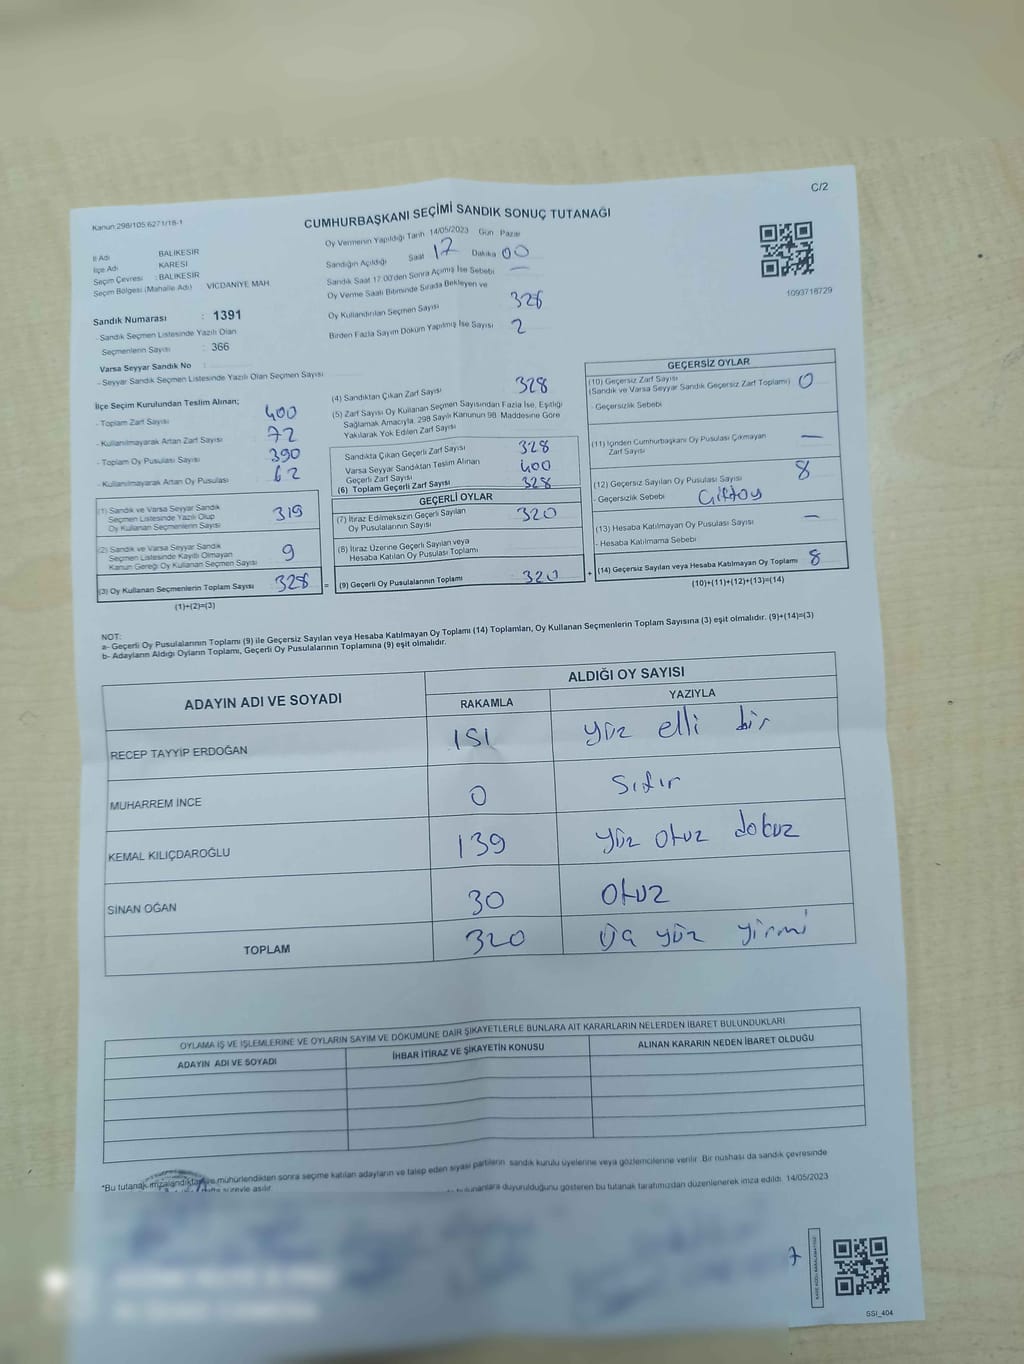 C/2
Kanun:298/105.6271/18-1
CUMHURBAŞKANI SEÇİMİ SANDIK SONUÇ TUTANAĞI
İl Adı BALIKESİR
İlçe Adı KARESİ
Seçim Çevresi : BALIKESİR
Seçim Bölgesi (Mahalle Adı) VİCDANİYE MAH.
Sandık Numarası : 1391
- Sandık Seçmen Listesinde Yazılı Olan
Seçmenlerin Sayısı : 366
Varsa Seyyar Sandık No :
- Seyyar Sandık Seçmen Listesinde Yazılı Olan Seçmen Sayısı
Oy Vermenin Yapıldığı Tarih 14/05/2023 Gün Pazar
Sandığın Açıldığı Saat 17 Dakika 00
Sandık Saat 17:00'den Sonra Açılmış İse Sebebi —
Oy Verme Saati Bitiminde Sırada Bekleyen ve
Oy Kullandırılan Seçmen Sayısı 328
Birden Fazla Sayım Döküm Yapılmış İse Sayısı 2
1093718729
İlçe Seçim Kurulundan Teslim Alınan;
- Toplam Zarf Sayısı 400
- Kullanılmayarak Artan Zarf Sayısı 72
- Toplam Oy Pusulası Sayısı 390
- Kullanılmayarak Artan Oy Pusulası 62
(1) Sandık ve Varsa Seyyar Sandık
Seçmen Listesinde Yazılı Olup
Oy Kullanan Seçmenlerin Sayısı 319
(2) Sandık ve Varsa Seyyar Sandık
Seçmen Listesinde Kayıtlı Olmayan
Kanun Gereği Oy Kullanan Seçmen Sayısı 9
(3) Oy Kullanan Seçmenlerin Toplam Sayısı 328
(1)+(2)=(3)
(4) Sandıktan Çıkan Zarf Sayısı 328
(5) Zarf Sayısı Oy Kullanan Seçmen Sayısından Fazla İse, Eşitliği
Sağlamak Amacıyla, 298 Sayılı Kanunun 98. Maddesine Göre
Yakılarak Yok Edilen Zarf Sayısı
Sandıkta Çıkan Geçerli Zarf Sayısı 328
Varsa Seyyar Sandıktan Teslim Alınan
Geçerli Zarf Sayısı 400
(6) Toplam Geçerli Zarf Sayısı 328
GEÇERLİ OYLAR
(7) İtiraz Edilmeksizin Geçerli Sayılan
Oy Pusulalarının Sayısı 320
(8) İtiraz Üzerine Geçerli Sayılan veya
Hesaba Katılan Oy Pusulası Toplamı
= (9) Geçerli Oy Pusulalarının Toplamı 320 +
GEÇERSİZ OYLAR
(10) Geçersiz Zarf Sayısı
(Sandık ve Varsa Seyyar Sandık Geçersiz Zarf Toplamı) 0
- Geçersizlik Sebebi
(11) İçinden Cumhurbaşkanı Oy Pusulası Çıkmayan
Zarf Sayısı —
(12) Geçersiz Sayılan Oy Pusulası Sayısı 8
- Geçersizlik Sebebi Çiftoy
(13) Hesaba Katılmayan Oy Pusulası Sayısı —
- Hesaba Katılmama Sebebi
(14) Geçersiz Sayılan veya Hesaba Katılmayan Oy Toplamı 8
(10)+(11)+(12)+(13)=(14)
NOT:
a- Geçerli Oy Pusulalarının Toplamı (9) ile Geçersiz Sayılan veya Hesaba Katılmayan Oy Toplamı (14) Toplamları, Oy Kullanan Seçmenlerin Toplam Sayısına (3) eşit olmalıdır. (9)+(14)=(3)
b- Adayların Aldığı Oyların Toplamı, Geçerli Oy Pusulalarının Toplamına (9) eşit olmalıdır.
ADAYIN ADI VE SOYADI ALDIĞI OY SAYISI
RAKAMLA YAZIYLA
RECEP TAYYİP ERDOĞAN 151 yüz elli bir
MUHARREM İNCE 0 Sıfır
KEMAL KILIÇDAROĞLU 139 yüz otuz dokuz
SİNAN OĞAN 30 Otuz
TOPLAM 320 Üç yüz yirmi
OYLAMA İŞ VE İŞLEMLERİNE VE OYLARIN SAYIM VE DÖKÜMÜNE DAİR ŞİKAYETLERLE BUNLARA AİT KARARLARIN NELERDEN İBARET BULUNDUKLARI
ADAYIN ADI VE SOYADI İHBAR İTİRAZ VE ŞİKAYETİN KONUSU ALINAN KARARIN NEDEN İBARET OLDUĞU
*Bu tutanak imzalandıktan ve mühürlendikten sonra seçime katılan adayların ve talep eden siyasi partilerin sandık kurulu üyelerine veya gözlemcilerine verilir. Bir nüshası da sandık çevresinde
süreyle asılır.
bulunanlara duyurulduğunu gösteren bu tutanak tarafımızdan düzenlenerek imza edildi. 14/05/2023
7
SSI_404